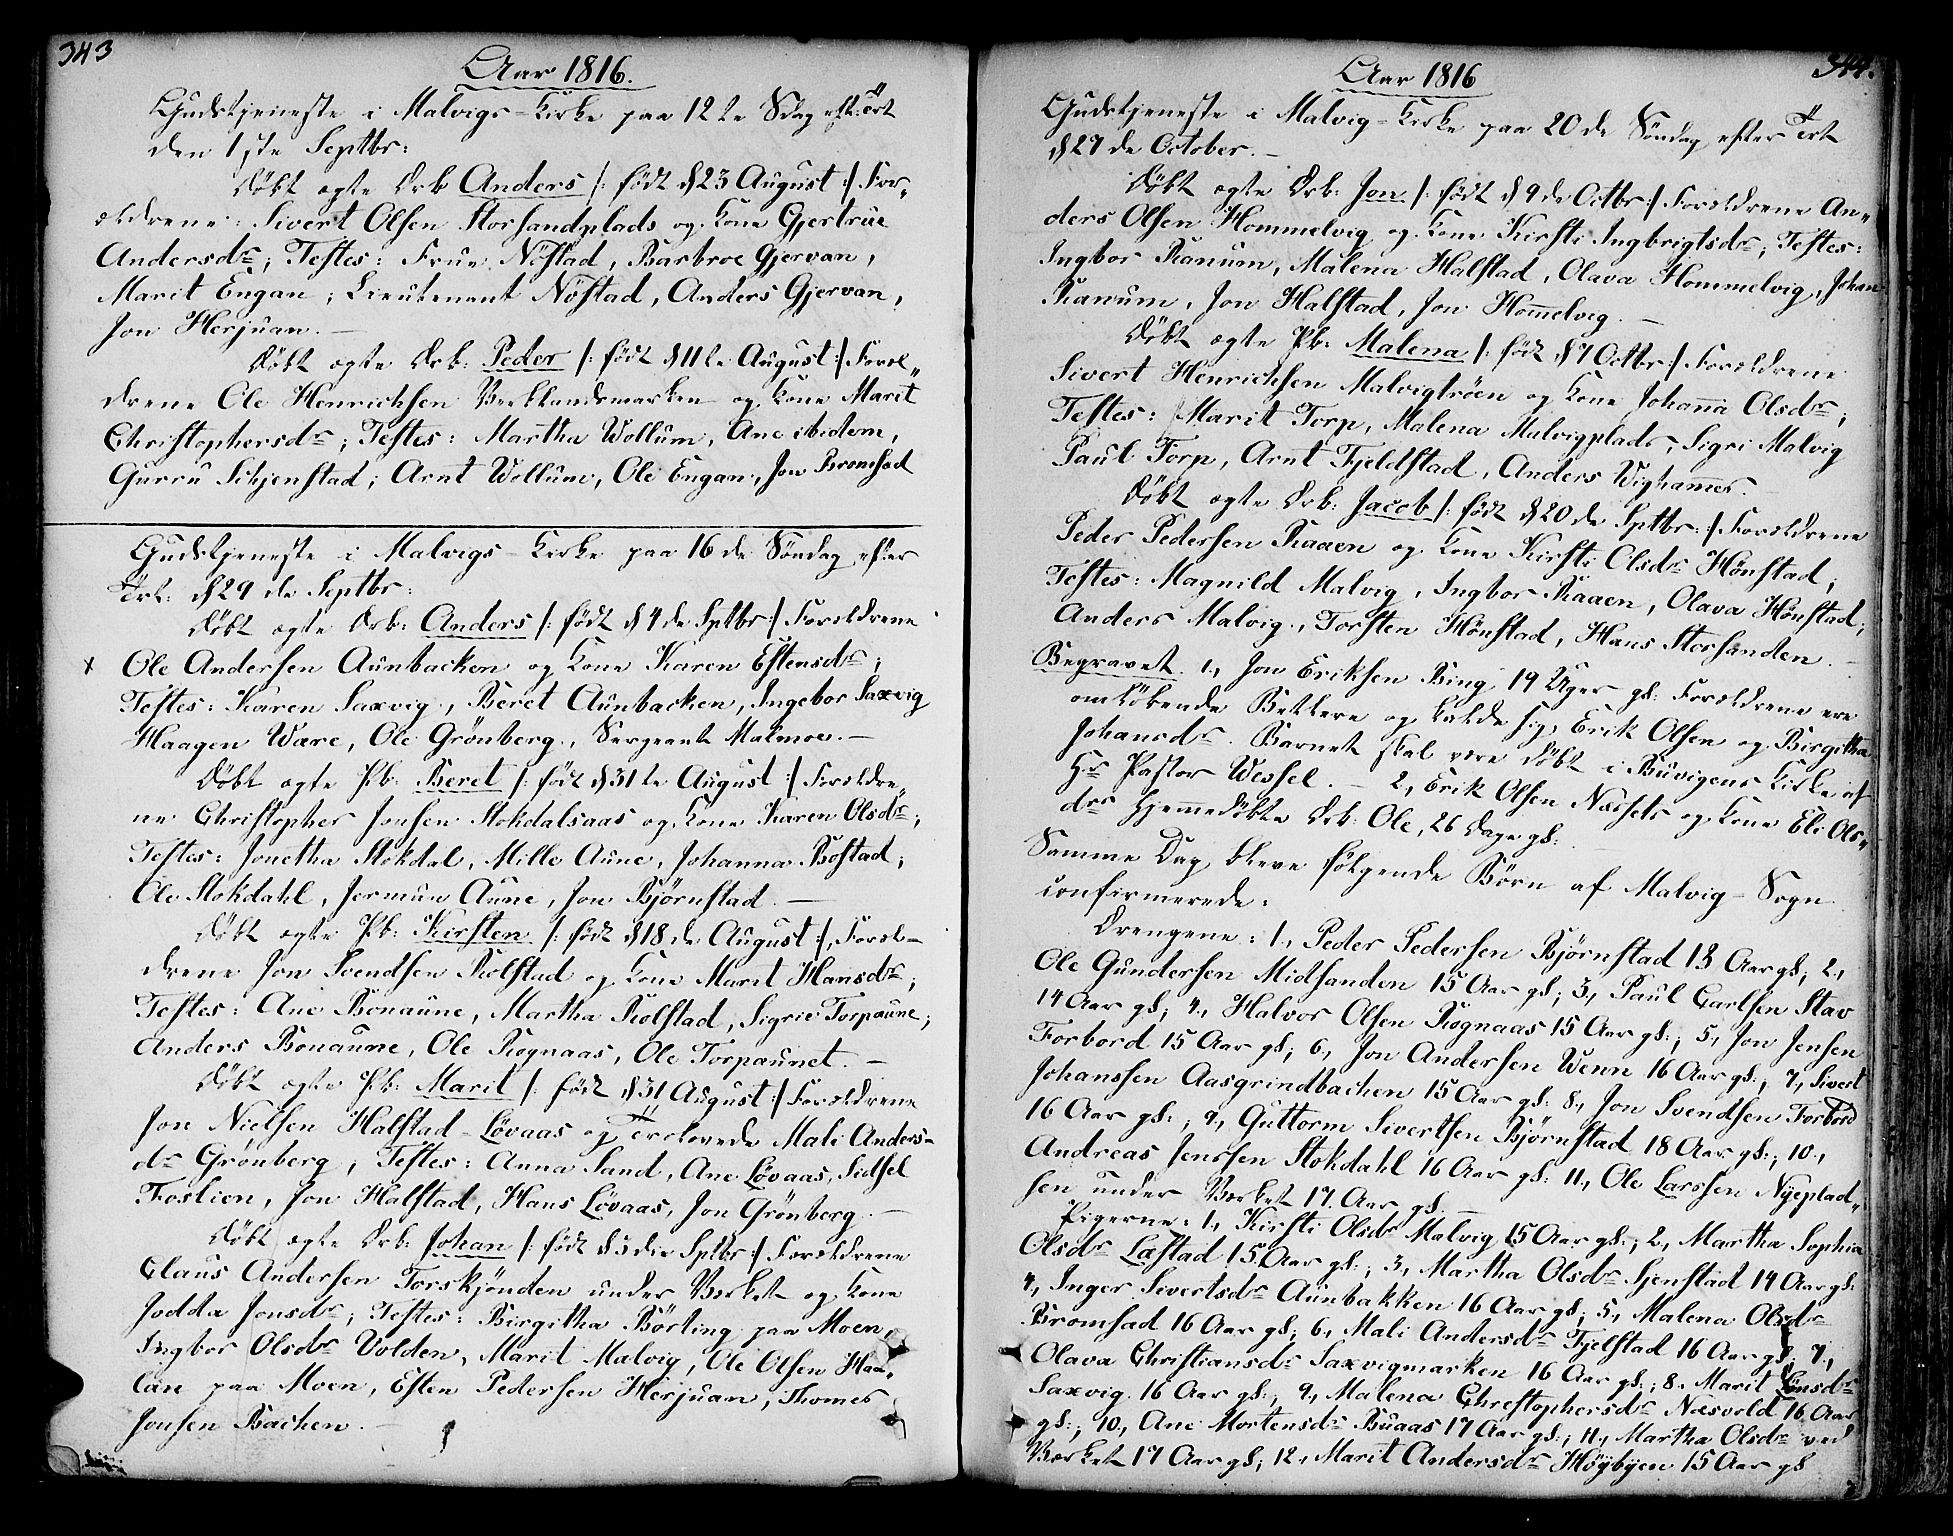 343
Aar 1816.
Gudstjeneste i Malvigs-Kirke paa 12te Sdag eft: Trt
den 1ste Septbr:
Døbt ægte Drb Anders /: født d 23 August :/ For„
ældrene: Sivert Olsen Storsandplads og Kone Gjertrue
Andersdr; Testes: Frue Nøstad, Barbroe Gjervan,
Marit Engan; Lieutenant Nøstad, Anders Gjervan,
Jon Herjuan. —
Døbt ægte Drb: Peder /: født d 11te August :/ Foræl„
drene Ole Henrichsen Verklandsmarken og Kone Marit
Christophersdr; Testes: Martha Wollum, Ane ibidem,
Gurru Schjenstad; Arnt Wollum, Ole Engan, Jon Bromsad
Gudstjeneste i Malvigs-Kirke paa 16de Søndag efter
Trt: d 29de Septbr:
Døbt ægte Drb: Anders /: født d 4de Sptbr :/ Forældrene
x Ole Andersen Aunbacken og Kone Karen Estensdr;
Testes: Karen Saxvig, Beret Aunbacken, Ingebor Saxvig
Haagen Være, Ole Grønberg, Sergeant Malmoe. —
Døbt ægte Pb: Beret /: født d 31te August :/ Forældre„
ne Christopher Jonsen Stokdalsaas og Kone Karen Olsdr;
Testes: Jonetha Stokdal, Mille Aune, Johanna Bostad;
Ole Stokdahl, Jermun Aune, Jon Bjørnstad. —
Døbt ægte Pb: Kirsten /: født d 18de August :/, Foræl-
drene Jon Svendsen Rolstad og Kone Marit Hansdr;
Testes: Ane Bonaune, Martha Rolstad, Sigrie Torpaune;
Anders Bonaune, Ole Rognaas, Ole Torpaunet. —
Døbt ægte Pb: Marit /: født d 31 August :/ Forældrene
Jon Nielsen Halstad-Løvaas og Trolovede Mali Anders-
dr Grønberg; Testes: Anna Sand, Ane Løvaas, Sidsel
Foslien, Jon Halstad, Hans Løvaas, Jon Grønberg. —
Døbt ægte Drb: Johan /: født d 5die Sptbr :/ Forældrene
Claus Andersen Torskjønden under Verket og Kone
Jodda Jonsdr; Testes: Birgitha Børting paa Moen,
Ingbor Olsdr Volden, Marit Malvig, Ole Olsen Haa„
lan paa Moen, Esten Pedersen Herjuan, Thomes
Jonsen Bachen. —
344.
Aar 1816
Gudstjeneste i Malvig-Kirke paa 20de Søndag efter Trt
d 27de October. —
Døbt ægte Drb: Jon /: født d 9de Octbr :/ Forældrene An„
ders Olsen Hommelvig og Kone Kirsti Ingbrigtsdr; Testes:
Ingbor Ranum, Malena Halstad, Olava Hommelvig, Johan
Ranum, Jon Halstad, Jon Hom̅elvig. —
Døbt ægte Pb: Malena /: født d 7 Octbr :/ Forældrene
Sivert Henrichsen Malvigtrøen og Kone Johanna Olsdr;
Testes: Marit Torp, Malena Malvigplads, Sigri Malvig
Paul Torp, Arnt Fjeldstad, Anders Wigham̅er.
Døbt ægte Drb: Jacob /: født d 20de Sptbr: :/ Forældrene
Peder Pedersen Raaen og Kone Kirsti Olsdr Hønstad;
Testes: Magnild Malvig, Ingbor Raaen, Olava Hønstad;
Anders Malvig, Torsten Hønstad, Hans Storsanden. —
Begravet. 1, Jon Eriksen Bing 19 Uger gl: Forældrene ere
omløbende Bettlere og kalde sig, Erik Olsen og Birgitha
Johansdr. Barnet skal være døbt i Buvigens Kirke af
Hr Pastor Wessel. — 2, Erik Olsen Næssets og Kone Eli Ols„
drs Hjem̅edøbte Drb: Ole, 26 Dage gl:
Samme Dag bleve følgende Børn af Malvig-Sogn
confirmerede:
Drengene: 1, Peder Pedersen Bjørnstad 18 Aar gl; 2,
Ole Gundersen Midsanden 15 Aar gl; 3, Paul Carlsen Stav
14 Aar gl; 4, Halvor Olsen Rognaas 15 Aar gl:; 5, Jon Jensen
Forbord 15 Aar gl; 6, Jon Andersen Wenn 16 Aar gl:, 7, Sivert
Johanssen Aasgrindbachen 15 Aar gl: 8, Jon Svendsen Forbord
16 Aar gl:; 9, Guttorm Sivertsen Bjørnstad 18 Aar gl:; 10,
Andreas Jenssen Stokdahl 16 Aar gl: 11, Ole Larssen Nyeplad„
sen under Verket 17 Aar gl. —
Pigerne: 1, Kirsti Olsdr Malvig 15 Aar gl:; 2, Martha Sophia
Olsdr Læstad 15 Aar gl:; 3, Martha Olsdr Sjenstad 14 Aar gl:
4, Inger Sivertsdr Aunbakken 16 Aar gl; 5, Malena Olsdr
Bromsad 16 Aar gl; 6, Mali Andersdr Fjelstad 16 Aar gl; 7,
Olava Christiansdr Saxvigmarken 16 Aar gl:; 8, Marit
Saxvig 16 Aar gl:; 9, Malena Christophersdr Næsvold 16 Aar
gl:; 10, Ane Mortensdr Buaas 17 Aar gl:; 11, Martha Olsdr ved
Verket 17 Aar gl; 12, Marit Andersdr Høybyen 15 Aar gl